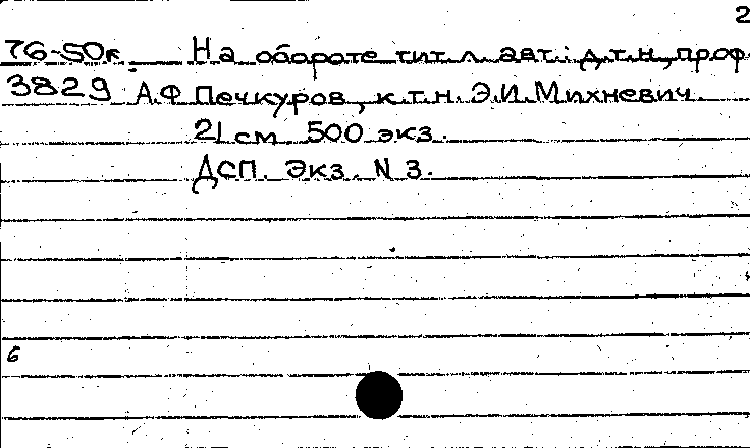 2
76-50к На обороте тит. л. авт.: д.т.н., проф
3829 А.Ф Печкуров, к.т.н. Э.И. Михневич.
21 см 500 экз.
ДСП. Экз. N 3.
6